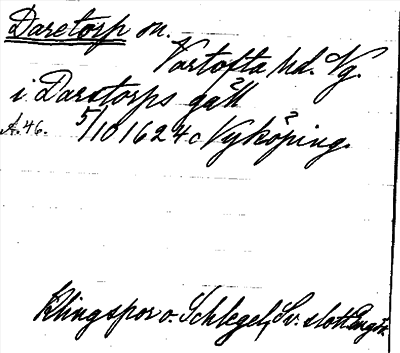 Daretorp sn.
Vartofta hd. Vg.
i Darstorps gäll
A.46. 5/10 1624 c Nyköping.
Klingspor o. Schlegel, Sv. slott